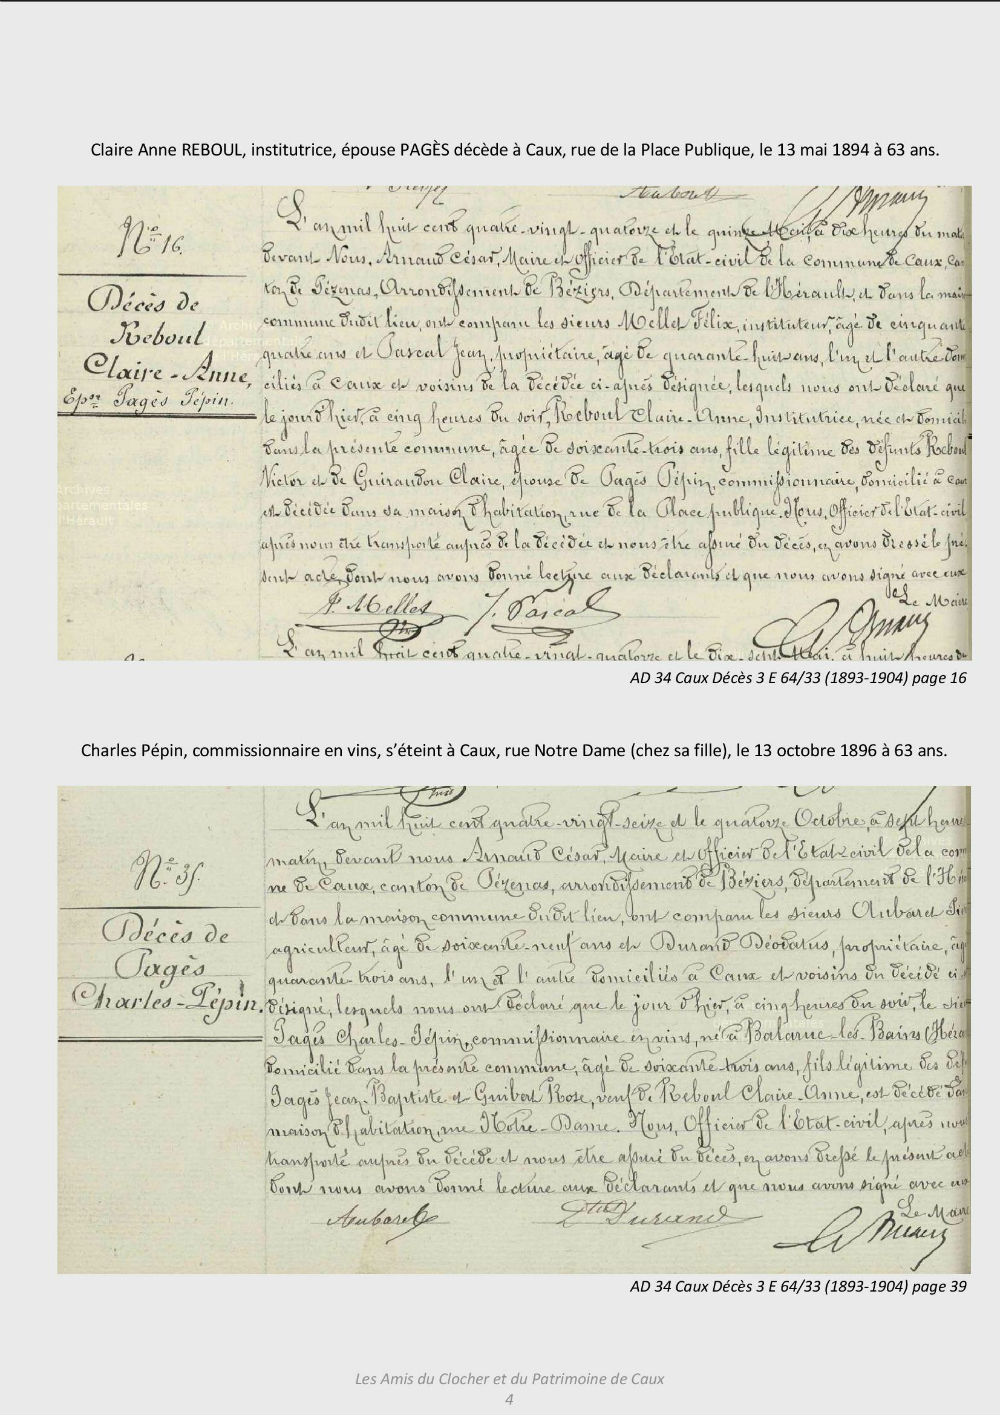 Claire Anne REBOUL, institutrice, épouse PAGÈS décède à Caux, rue de la Place Publique, le 13 mai 1894 à 63 ans.
Aubaret
N° 16.
Décès de
Reboul
Claire-Anne,
Épse Pagès Pépin.
Archives
départementales
de l'Hérault
L'an mil huit cent quatre-vingt-quatorze et le quinze Mai, à dix heures du mat
devant Nous, Arnaud César, Maire et Officier de l'État-civil de la commune de Caux, can
ton de Pézenas, Arrondissement de Béziers, Département de l'Hérault, et dans la mai
commune dudit lieu, ont comparu les sieurs Mellet Félix, instituteur, âgé de cinquante
quatre ans et Pascal Jean, propriétaire, âgé de quarante-huit ans, l'un et l'autre dom
ciliés à Caux et voisins de la décédée ci-après désignée, lesquels nous ont déclaré que
le jour d'hier, à cinq heures du soir, Reboul Claire-Anne, Institutrice, née et domicili
dans la présente commune, âgée de soixante-trois ans, fille légitime des défunts Reboul
Victor et de Guiraudou Claire, épouse de Pagès Pépin, commissionnaire, domicilié à Cau
est décédée dans sa maison d'habitation, rue de la Place publique. Nous, Officier de l'État-civil
après nous être transporté auprès de la décédée et nous être assuré du décès, en avons dressé le pré
sent acte, dont nous avons donné lecture aux déclarants et que nous avons signé avec eux
Le Maire
F. Mellet J. Pascal
L'an mil huit cent quatre-vingt-quatorze et le dix-sept Mai, à huit heures du
AD 34 Caux Décès 3 E 64/33 (1893-1904) page 16
Charles Pépin, commissionnaire en vins, s'éteint à Caux, rue Notre Dame (chez sa fille), le 13 octobre 1896 à 63 ans.
N° 35.
Décès de
Pagès
Charles-Pépin.
L'an mil huit cent quatre-vingt-seize et le quatorze Octobre, à sept heure
matin, devant nous Arnaud César, Maire et Officier de l'État-civil de la com
ne de Caux, canton de Pézenas, arrondissement de Béziers, département de l'Hé
et dans la maison commune dudit lieu, ont comparu les sieurs Aubaret
agriculteur, âgé de soixante-neuf ans et Durand Déodatus, propriétaire, âg
quarante-trois ans, l'un et l'autre domiciliés à Caux et voisins du décédé ci
désigné, lesquels nous ont déclaré que le jour d'hier, à cinq heures du soir, le sieu
Pagès Charles-Pépin, commissionnaire en vins, né à Balaruc-les-Bains (Héra
domicilié dans la présente commune, âgé de soixante-trois ans, fils légitime des déf
Pagès Jean-Baptiste et Guibert Rose, veuf de Reboul Claire-Anne, est décédé dan
maison d'habitation, rue Notre-Dame. Nous, Officier de l'État-civil, après nous
transporté auprès du décédé et nous être assuré du décès, en avons dressé le présent act
dont nous avons donné lecture aux déclarants et que nous avons signé avec eux
Le Maire
Aubaret Durand
AD 34 Caux Décès 3 E 64/33 (1893-1904) page 39
Les Amis du Clocher et du Patrimoine de Caux
4